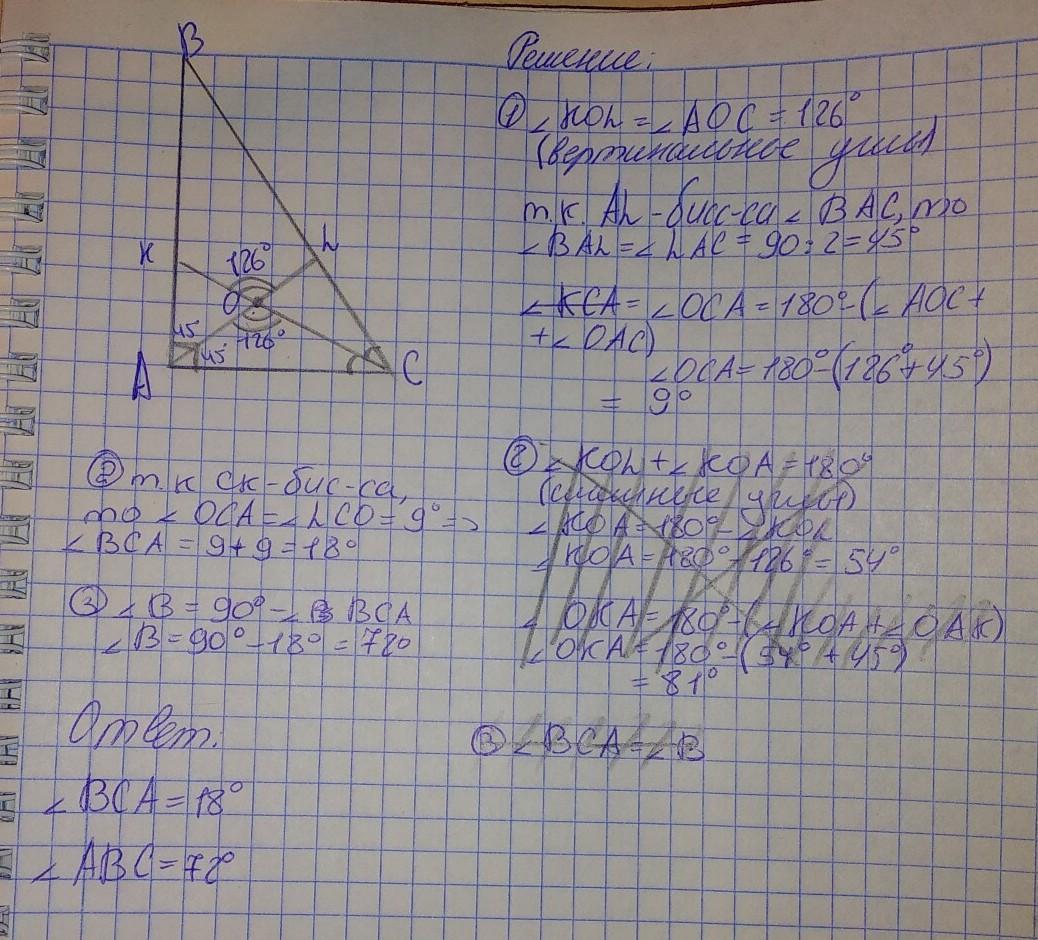 B
K
L
126°
O
126°
45
45
A
C
Решение:
① ∠KOL = ∠AOC = 126°
(вертикальное углы)
т.к. AL - бисс-са ∠BAC, то
∠BAL = ∠LAC = 90 : 2 = 45°
∠KCA = ∠OCA = 180° - (∠AOC +
+ ∠OAC)
∠OCA = 180° - (126° + 45°)
= 9°
② т.к CK - бис-са,
то ∠OCA = ∠LCO = 9° =>
∠BCA = 9 + 9 = 18°
③ ∠B = 90° - ∠B BCA
∠B = 90° - 18° = 72°
Ответ:
∠BCA = 18°
∠ABC = 72°
② ∠KOL + ∠KOA = 180°
(смежные углы)
∠KOA = 180° - ∠KOL
∠KOA = 180° - 126° = 54°
∠OKA = 180° - (∠KOA + ∠OAK)
∠OKA = 180° - (54° + 45°)
= 81°
③ ∠BCA = ∠B